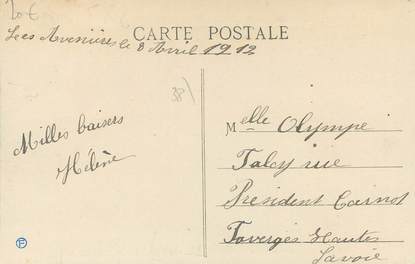 20€
CARTE POSTALE
Les Avenières le 8 Avril 1912
38
Milles baisers
Hélène
Melle Olympe
Talcy rue
Président Carnot
Faverges Hautes
Savoie
F